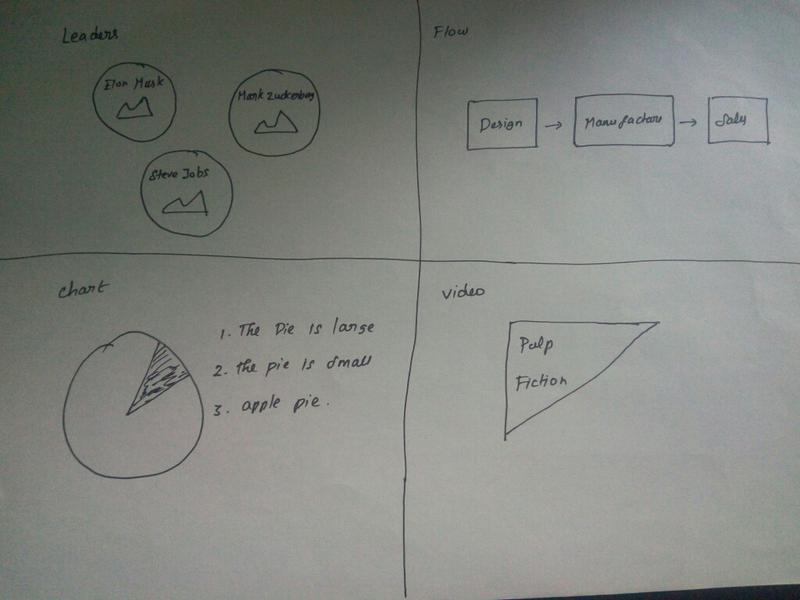 Leaders
Elon Mask
Mark Zuckenberg
Steve Jobs
Flow
Design
Manufacture
Sales
chart
1. The Pie is large
2. the pie is small
3. apple pie.
video
Pulp
Fiction